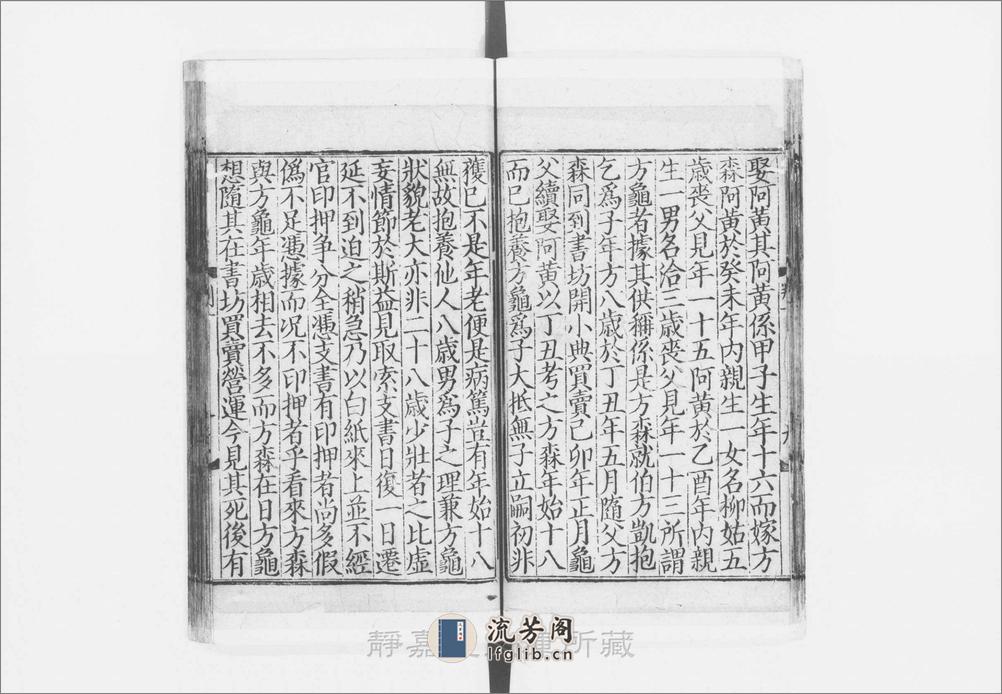 娶阿黃其阿黃係甲子生年十六而嫁方
森阿黃於癸未年內親生一女名柳姑五
歲喪父見年一十五阿黃於乙酉年內親
生一男名洽三歲喪父見年一十三所謂
方龜者據其供稱係是方森就伯方凱抱
乞爲子年方八歲於丁丑年五月隨父方
森同到書坊開小典買賣己卯年正月龜
父續娶阿黃以丁丑考之方森年始十八
而已抱養方龜爲子大抵無子立嗣初非
獲已不是年老便是病篤豈有年始十八
無故抱養他人八歲男爲子之理兼方龜
狀貌老大亦非二十八歲少壯者之比虛
妄情節於斯益見取索支書日復一日遷
延不到迫之稍急乃以白紙來上並不經
官印押爭分全憑支書有印押者尚多假
僞不足憑據而况不印押者乎看來方森
與方龜年歲相去不多而方森在日方龜
想隨其在書坊買賣營運今見其死後有
靜嘉 所藏
流芳阁
lfglib.cn